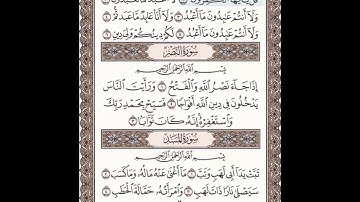 وَلَا أَنتُمْ عَٰبِدُونَ مَا أَعْبُدُ ۝ وَلَا أَنَا۠ عَابِدٌ مَّا عَبَدتُّمْ
وَلَا أَنتُمْ عَٰبِدُونَ مَا أَعْبُدُ ۝ لَكُمْ دِينُكُمْ وَلِيَ دِينِ
سُورَةُ النَّصْرِ
بِسْمِ اللَّهِ الرَّحْمَٰنِ الرَّحِيمِ
إِذَا جَاءَ نَصْرُ اللَّهِ وَالْفَتْحُ ۝ وَرَأَيْتَ النَّاسَ
يَدْخُلُونَ فِي دِينِ اللَّهِ أَفْوَاجًا ۝ فَسَبِّحْ بِحَمْدِ رَبِّكَ
وَاسْتَغْفِرْهُ إِنَّهُ كَانَ تَوَّابًا ۝
سُورَةُ الْمَسَدِ
بِسْمِ اللَّهِ الرَّحْمَٰنِ الرَّحِيمِ
تَبَّتْ يَدَا أَبِي لَهَبٍ وَتَبَّ ۝ مَا أَغْنَىٰ عَنْهُ مَالُهُ وَمَا كَسَبَ ۝
سَيَصْلَىٰ نَارًا ذَاتَ لَهَبٍ ۝ وَامْرَأَتُهُ حَمَّالَةَ الْحَطَبِ ۝